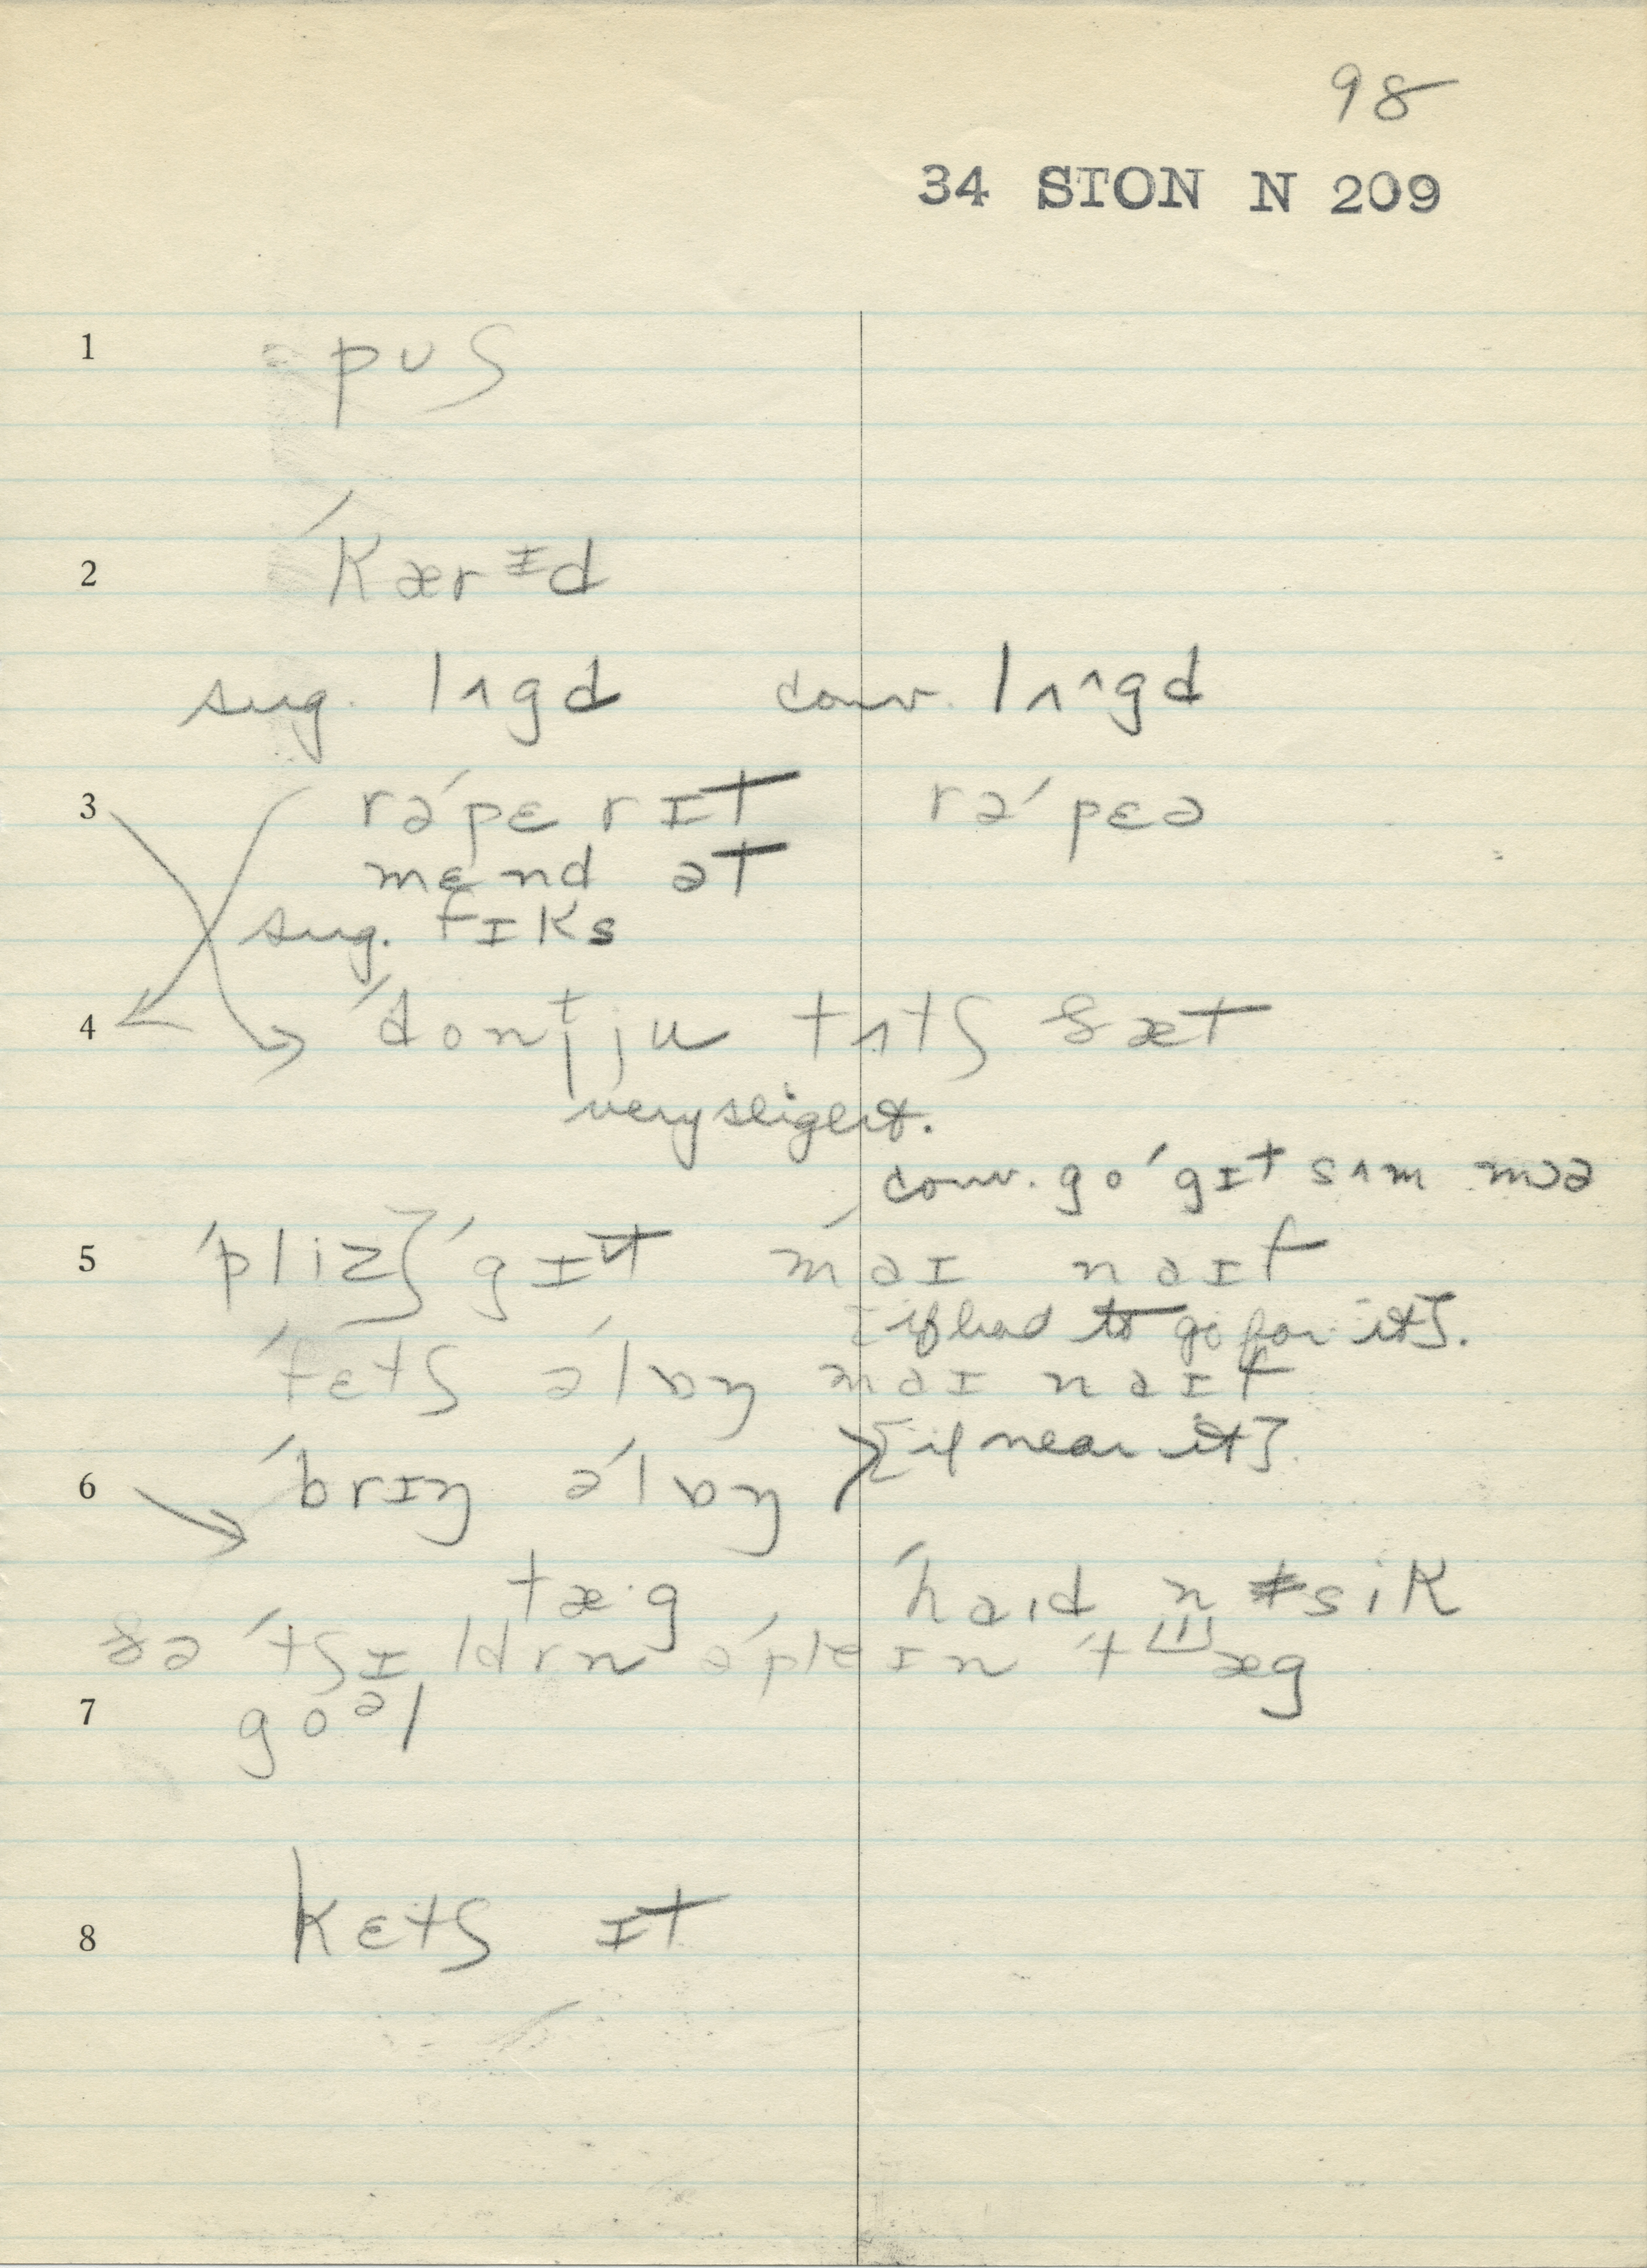 98
34 STON N 209
1 pʊʃ
2 ˈkærɪd
sug. lʌgd conv. lʌ^ʌgd
3 rəˈpɛrɪt rəˈpɛə
mɛnd ət
sug. fɪks
4 ˈdontjju tʌtʃ ðæt
very slight.
conv. go ˈgɪt sʌm mɔə
5 ˈpliz} ˈgɪt ˈmaɪ naɪf
[if had to go for it].
ˈfɛtʃ əˈlɒŋ maɪ naɪf
6 ˈbrɪŋ əˈlɒŋ } [if near it]
tæ·g ˈhaɪd n sik
ðə ˈtʃɪldrn əˈpleɪn ˈtæg
7 goəl
8 kɛtʃ ɪt